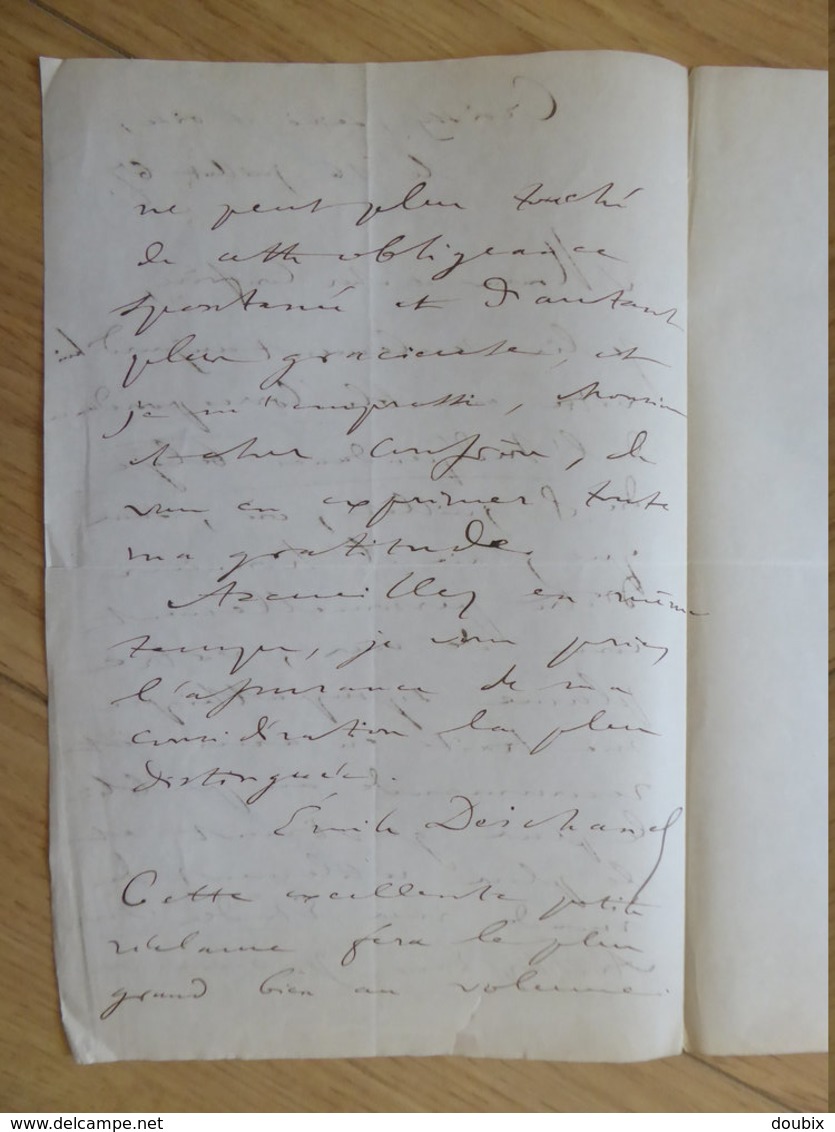 ne peut plus touché
de cette obligeance
spontanée et d'autant
plus gracieuse, et
je m'empresse, Monsieur
et cher Confrère, de
vous en exprimer toute
ma gratitude.
Accueillez en même
temps, je vous prie,
l'assurance de ma
considération la plus
distinguée.
Émile Deschanel
Cette excellente petite
réclame fera le plus
grand bien au volume.
delcampe.net
doubix